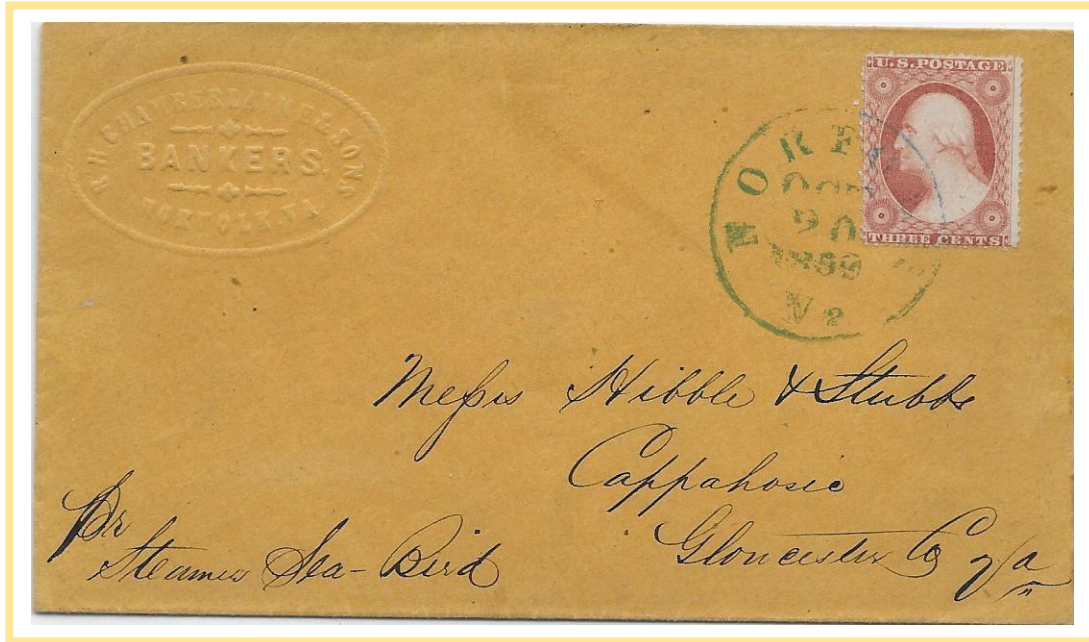 R H CHAMBERLAINE & SONS
BANKERS.
NORFOLK, VA
U.S. POSTAGE
THREE CENTS
NORF
OCT
20
1859
Va
Messrs Hibble & Stubbs
Cappahosic
Gloucester Co Va
Pr
Steamer Sea-Bird